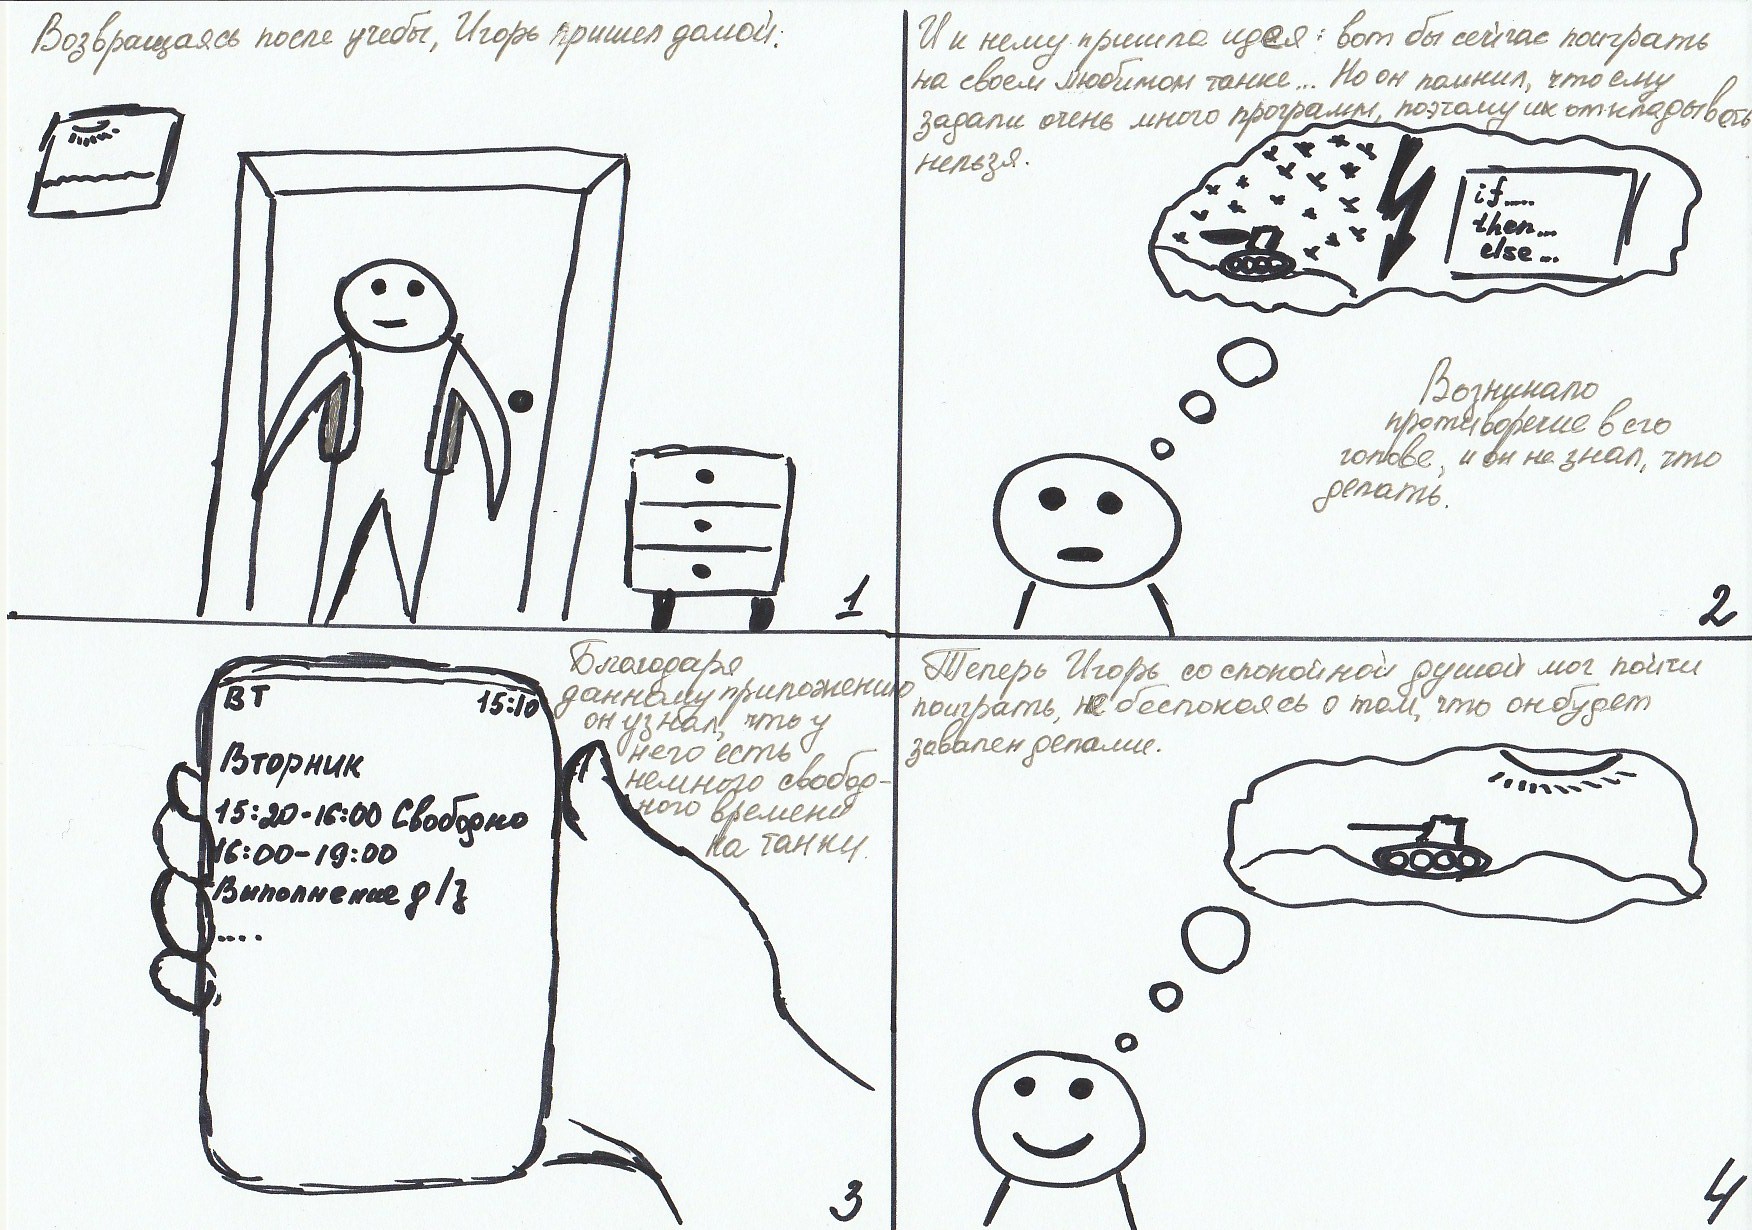 Возвращаясь после учебы, Игорь пришел домой.
1
И к нему пришла идея: вот бы сейчас поиграть
на своем любимом танке... Но он помнил, что ему
задали очень много программ, поэтому их откладывать
нельзя.
if.....
then...
else...
Возникало
противоречие в его
голове, и он не знал, что
делать.
2
ВТ 15:10
Вторник
15:20-16:00 Свободно
16:00-19:00
Выполнение д/з
....
Благодаря
данному приложению
он узнал, что у
него есть
немного свобод-
ного времени
на танки.
3
Теперь Игорь со спокойной душой мог пойти
поиграть, не беспокоясь о том, что он будет
завален делами.
4